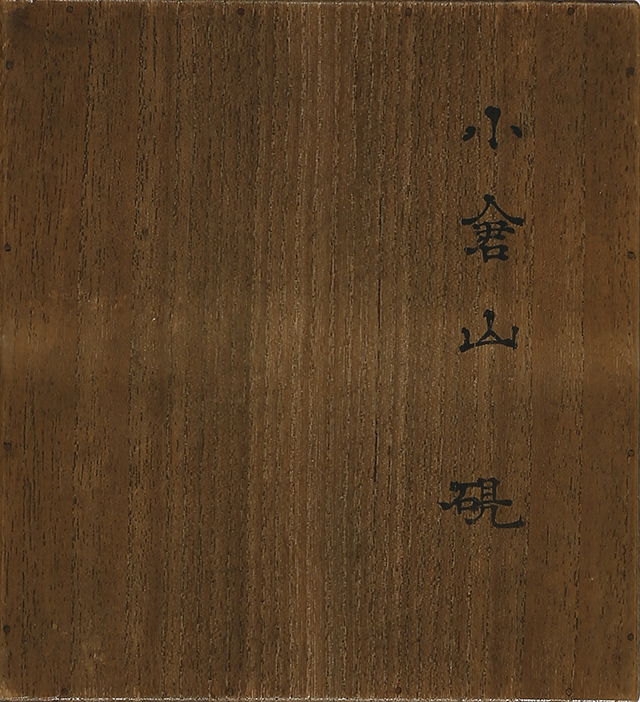 小倉山硯